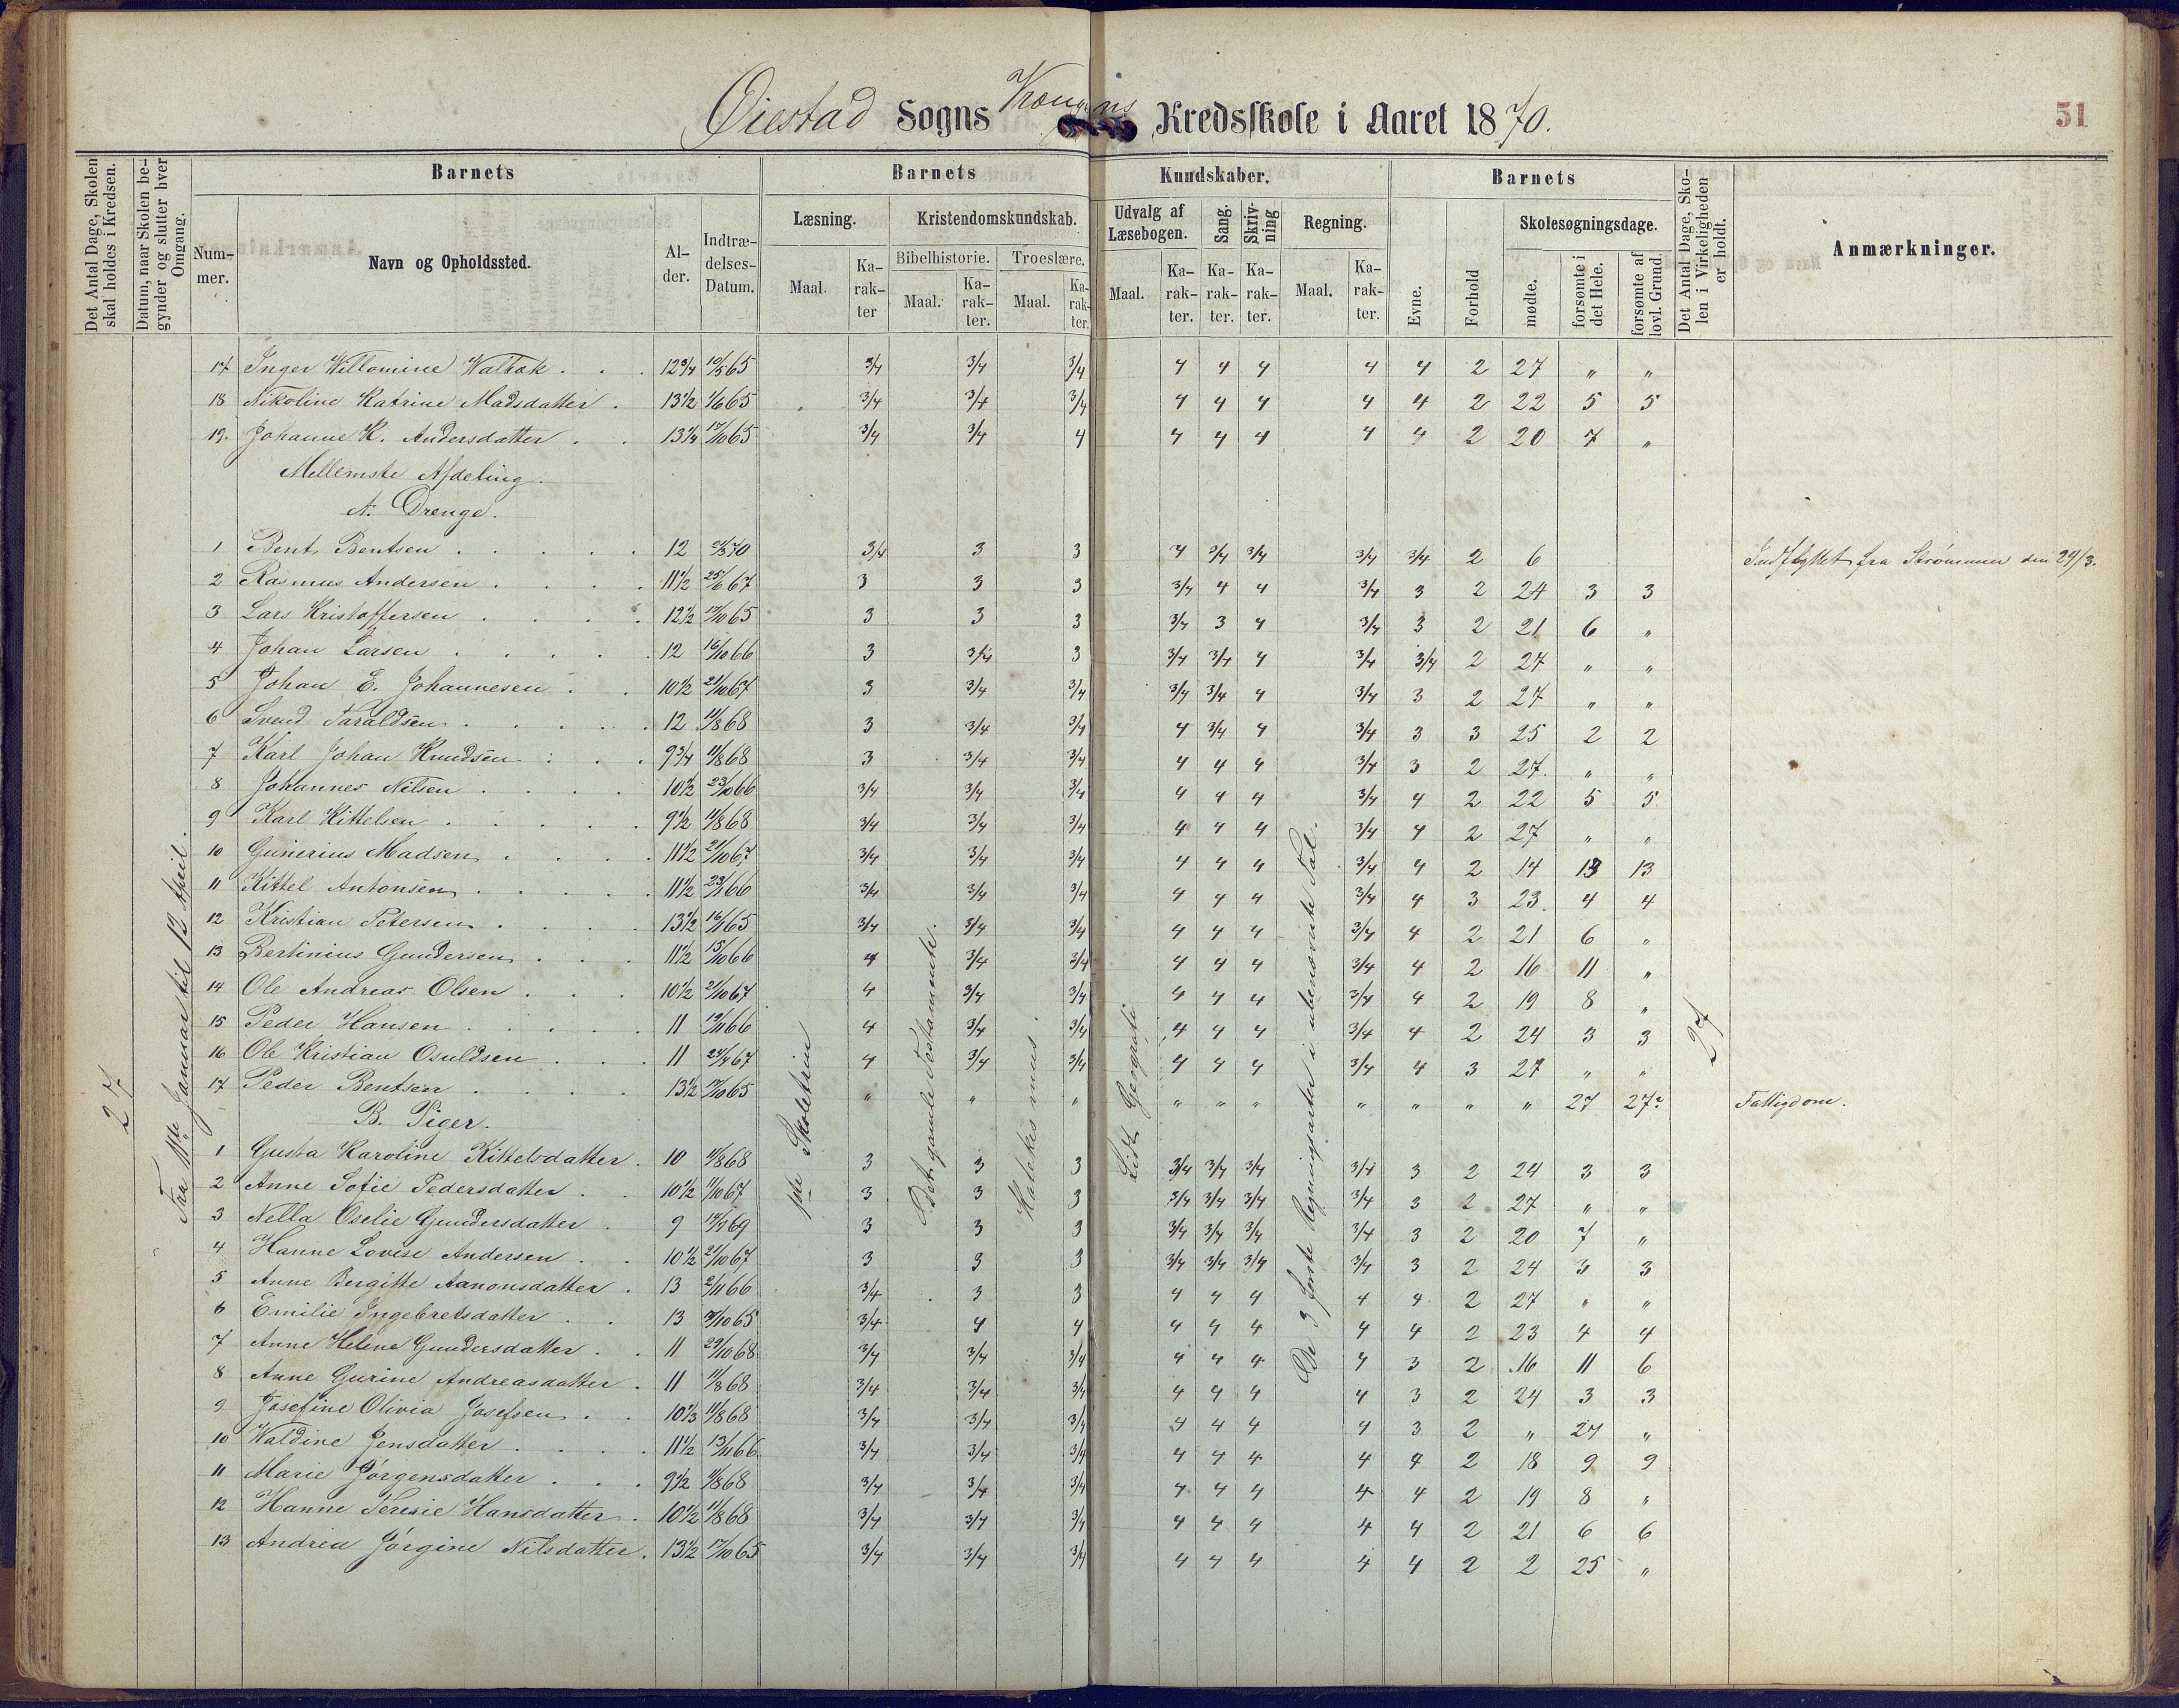 Øiestad Sogns Kredsskole i Aaret 1870.
51
Det Antal Dage, Skolen skal holdes i Kredsen.
Datum, naar Skolen begynder og slutter hver Omgang.
Barnets
Nummer.
Navn og Opholdssted.
Alder.
Indtrædelses-Datum.
Barnets Kundskaber.
Læsning.
Maal.
Karakter
Kristendomskundskab.
Bibelhistorie.
Maal.
Karakter.
Troeslære.
Maal.
Karakter.
Udvalg af Læsebogen.
Maal.
Karakter.
Sang.
Karakter.
Skrivning
Karakter.
Regning.
Maal.
Karakter.
Barnets
Evne.
Forhold
Skolesøgningsdage.
mødte.
forsømte i det Hele.
forsømte af lovl. Grund.
Det Antal Dage, Skolen i Virkeligheden er holdt.
Anmærkninger.
27
Fra 11te Januar til 12 April.
1ste Skoletrin
Det gamle Testamente.
Katekismus.
De 3 første Regningsarter i ubenævnte Tal.
27
17 Inger Willomine 12 3/4 10/5 65 3/4 3/4 3/4 4 4 4 4 4 2 27 " "
18 Nikoline Katrine Madsdatter 13 1/2 1/6 65 3/4 3/4 3/4 4 4 4 4 4 2 22 5 5
19. Johanne K. Andersdatter 13 1/4 17/10 65 3/4 3/4 4 4 4 4 4 4 2 20 7 "
Mellemste Afdeling.
A. Drenge.
1 Bent Bentsen 12 3/4 3 3 4 3/4 3/4 3/4 3/4 2 6 Indflyttet fra Strømmen den 24/3.
2 Rasmus Andersen 11 1/2 25/6 67 3 3 3 3/4 4 4 3/4 3 2 24 3 3
3 Lars Kristoffersen 12 1/2 17/10 65 3 3 3 3/4 3 4 3/4 3 2 21 6 "
4 Johan Larsen 12 16/10 66 3 3/4 3 3/4 3/4 4 3/4 3/4 2 27 " "
5 Johan E. Johannesen 10 1/2 21/10 67 3 3/4 3/4 3/4 3/4 4 3/4 3 2 27 " "
6 Svend Taraldsen 12 11/8 68 3 3/4 3/4 4 3/4 4 3/4 3 3 25 2 2
7 Karl Johan Knudsen 9 3/4 11/8 68 3 3/4 3/4 4 4 4 3/4 3 2 27. " "
8 Johannes Nilsen 10 1/2 23/10 66 3/4 3/4 3/4 4 4 4 3/4 4 2 22 5 5
9 Karl Kittelsen 9 1/2 11/8 68 3/4 3/4 3/4 4 4 4 3/4 4 2 27 " "
10 Gunerius Madsen 11 1/2 21/10 67 3/4 3/4 3/4 4 4 4 3/4 4 2 14 13 13
11 Kittel Antonsen 11 1/2 23/1 66 3/4 3/4 3/4 4 4 4 3/4 4 3 23. 4 4
12 Kristian Petersen 13 1/2 16/1 65 3/4 3/4 3/4 4 4 4 3/4 4 2 21 6 "
13 Bertinius Gundersen 11 1/2 15/10 66 4 3/4 3/4 4 4 4 3/4 4 2 16 11 "
14 Ole Andreas Olsen 10 1/2 21/10 67 4 3/4 3/4 4 4 4 3/4 4 2 19 8 "
15 Peder Hansen 11 19/11 66 4 3/4 3/4 4 4 4 3/4 4 2 24 3 3
16 Ole Kristian Osuldsen 11 24/4 67 4 3/4 3/4 4 4 4 3/4 4 3 27 " "
17 Peder Bentsen 13 1/2 17/10 65 " " " " " " " " " " 27 27 Fattigdom.
B. Piger.
1 Gusta Karoline Kittelsdatter 10 11/8 68 3 3 3 3/4 3/4 3/4 3/4 3 2 24 3 3
2 Anne Sofie Pedersdatter 10 1/2 11/10 67 3 3 3 3/4 3/4 3/4 3/4 3 2 27 " "
3 Nella Oselie Gundersdatter 9 3 3 3 3/4 3/4 3/4 3/4 3 2 20 7 "
4 Hanne Lovise Andersen 10 1/2 21/10 67 3 3 3 3/4 3/4 3/4 3/4 3 2 24 3 3
5 Anne Bergitte Aanonsdatter 13 2/11 66 3/4 3 3 4 4 4 4 4 2 27 " "
6 Emilie Ingebretsdatter 13 3/4 4 4 4 4 4 4 4 2 23 4 4
7 Anne Helene Gundersdatter 11 29/10 68 3/4 3/4 3/4 4 4 4 4 3 2 16 11 6
8 Anne Gurine Andreasdatter 11 11/8 68 3/4 3/4 3/4 4 4 4 4 3 2 24 3 3
9 Josefine Olivia Josefsen 10 1/3 11/8 68 3/4 3/4 3/4 4 4 4 4 3 2 " 27 "
10 Waldine Jensdatter 11 1/2 13/11 66 3/4 3/4 3/4 4 4 4 4 4 2 18 9 9
11 Marie Jørgensdatter 9 1/2 11/8 68 3/4 3/4 3/4 4 4 4 4 4 2 19 8 "
12 Hanne Teresie Hansdatter 10 1/2 11/8 68 3/4 3/4 3/4 4 4 4 4 4 2 21 6 6
13 Andrea Jørgine Nilsdatter 13 1/2 17/10 65 3/4 3/4 3/4 4 4 4 4 4 2 2 25 "